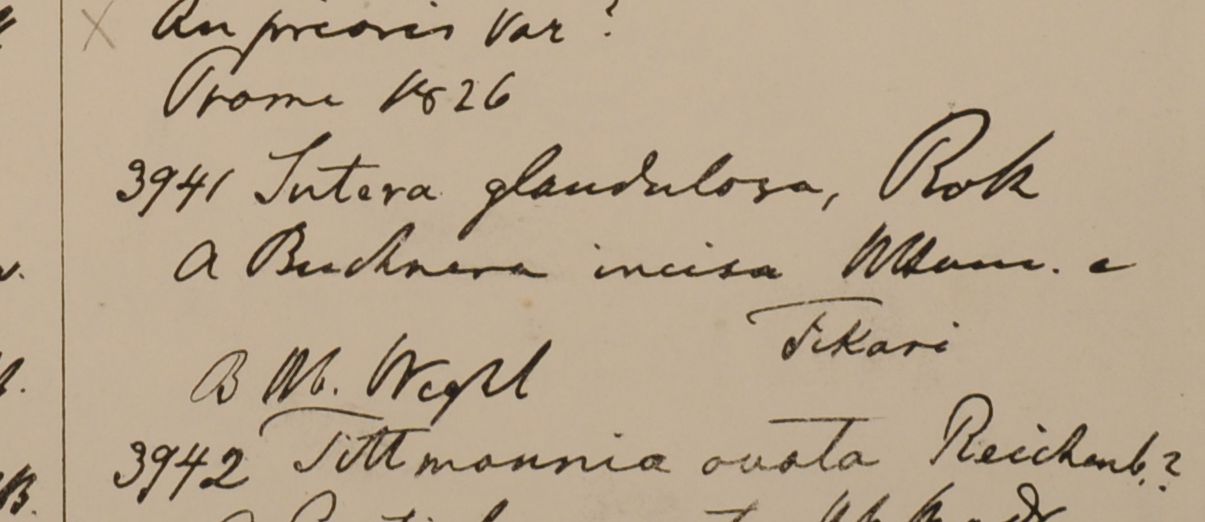 An prioris Var?
Prome 1826
3941 Sutera glandulosa, Roth
A Buchnera incisa Hb Ham. e
Tikari
B Hb. Wight
3942 Tittmannia ovata Reichenb.?